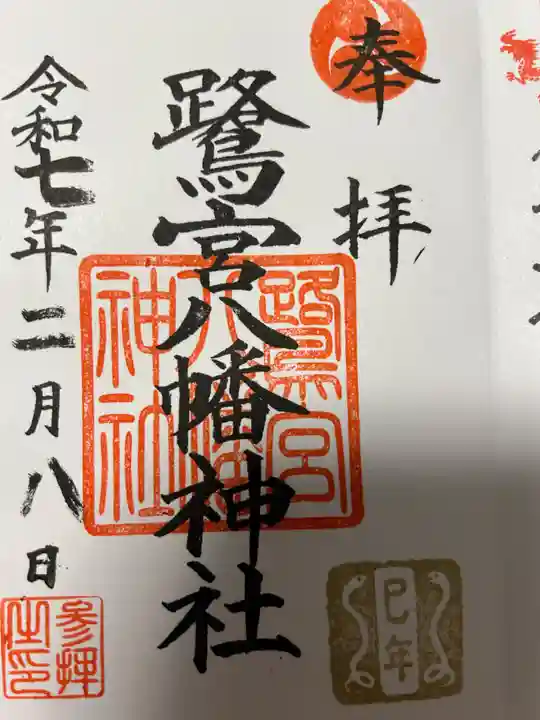 奉拝
鷺宮八幡神社
鷺宮
八幡
神社
令和七年二月八日
参拝
之印
巳年